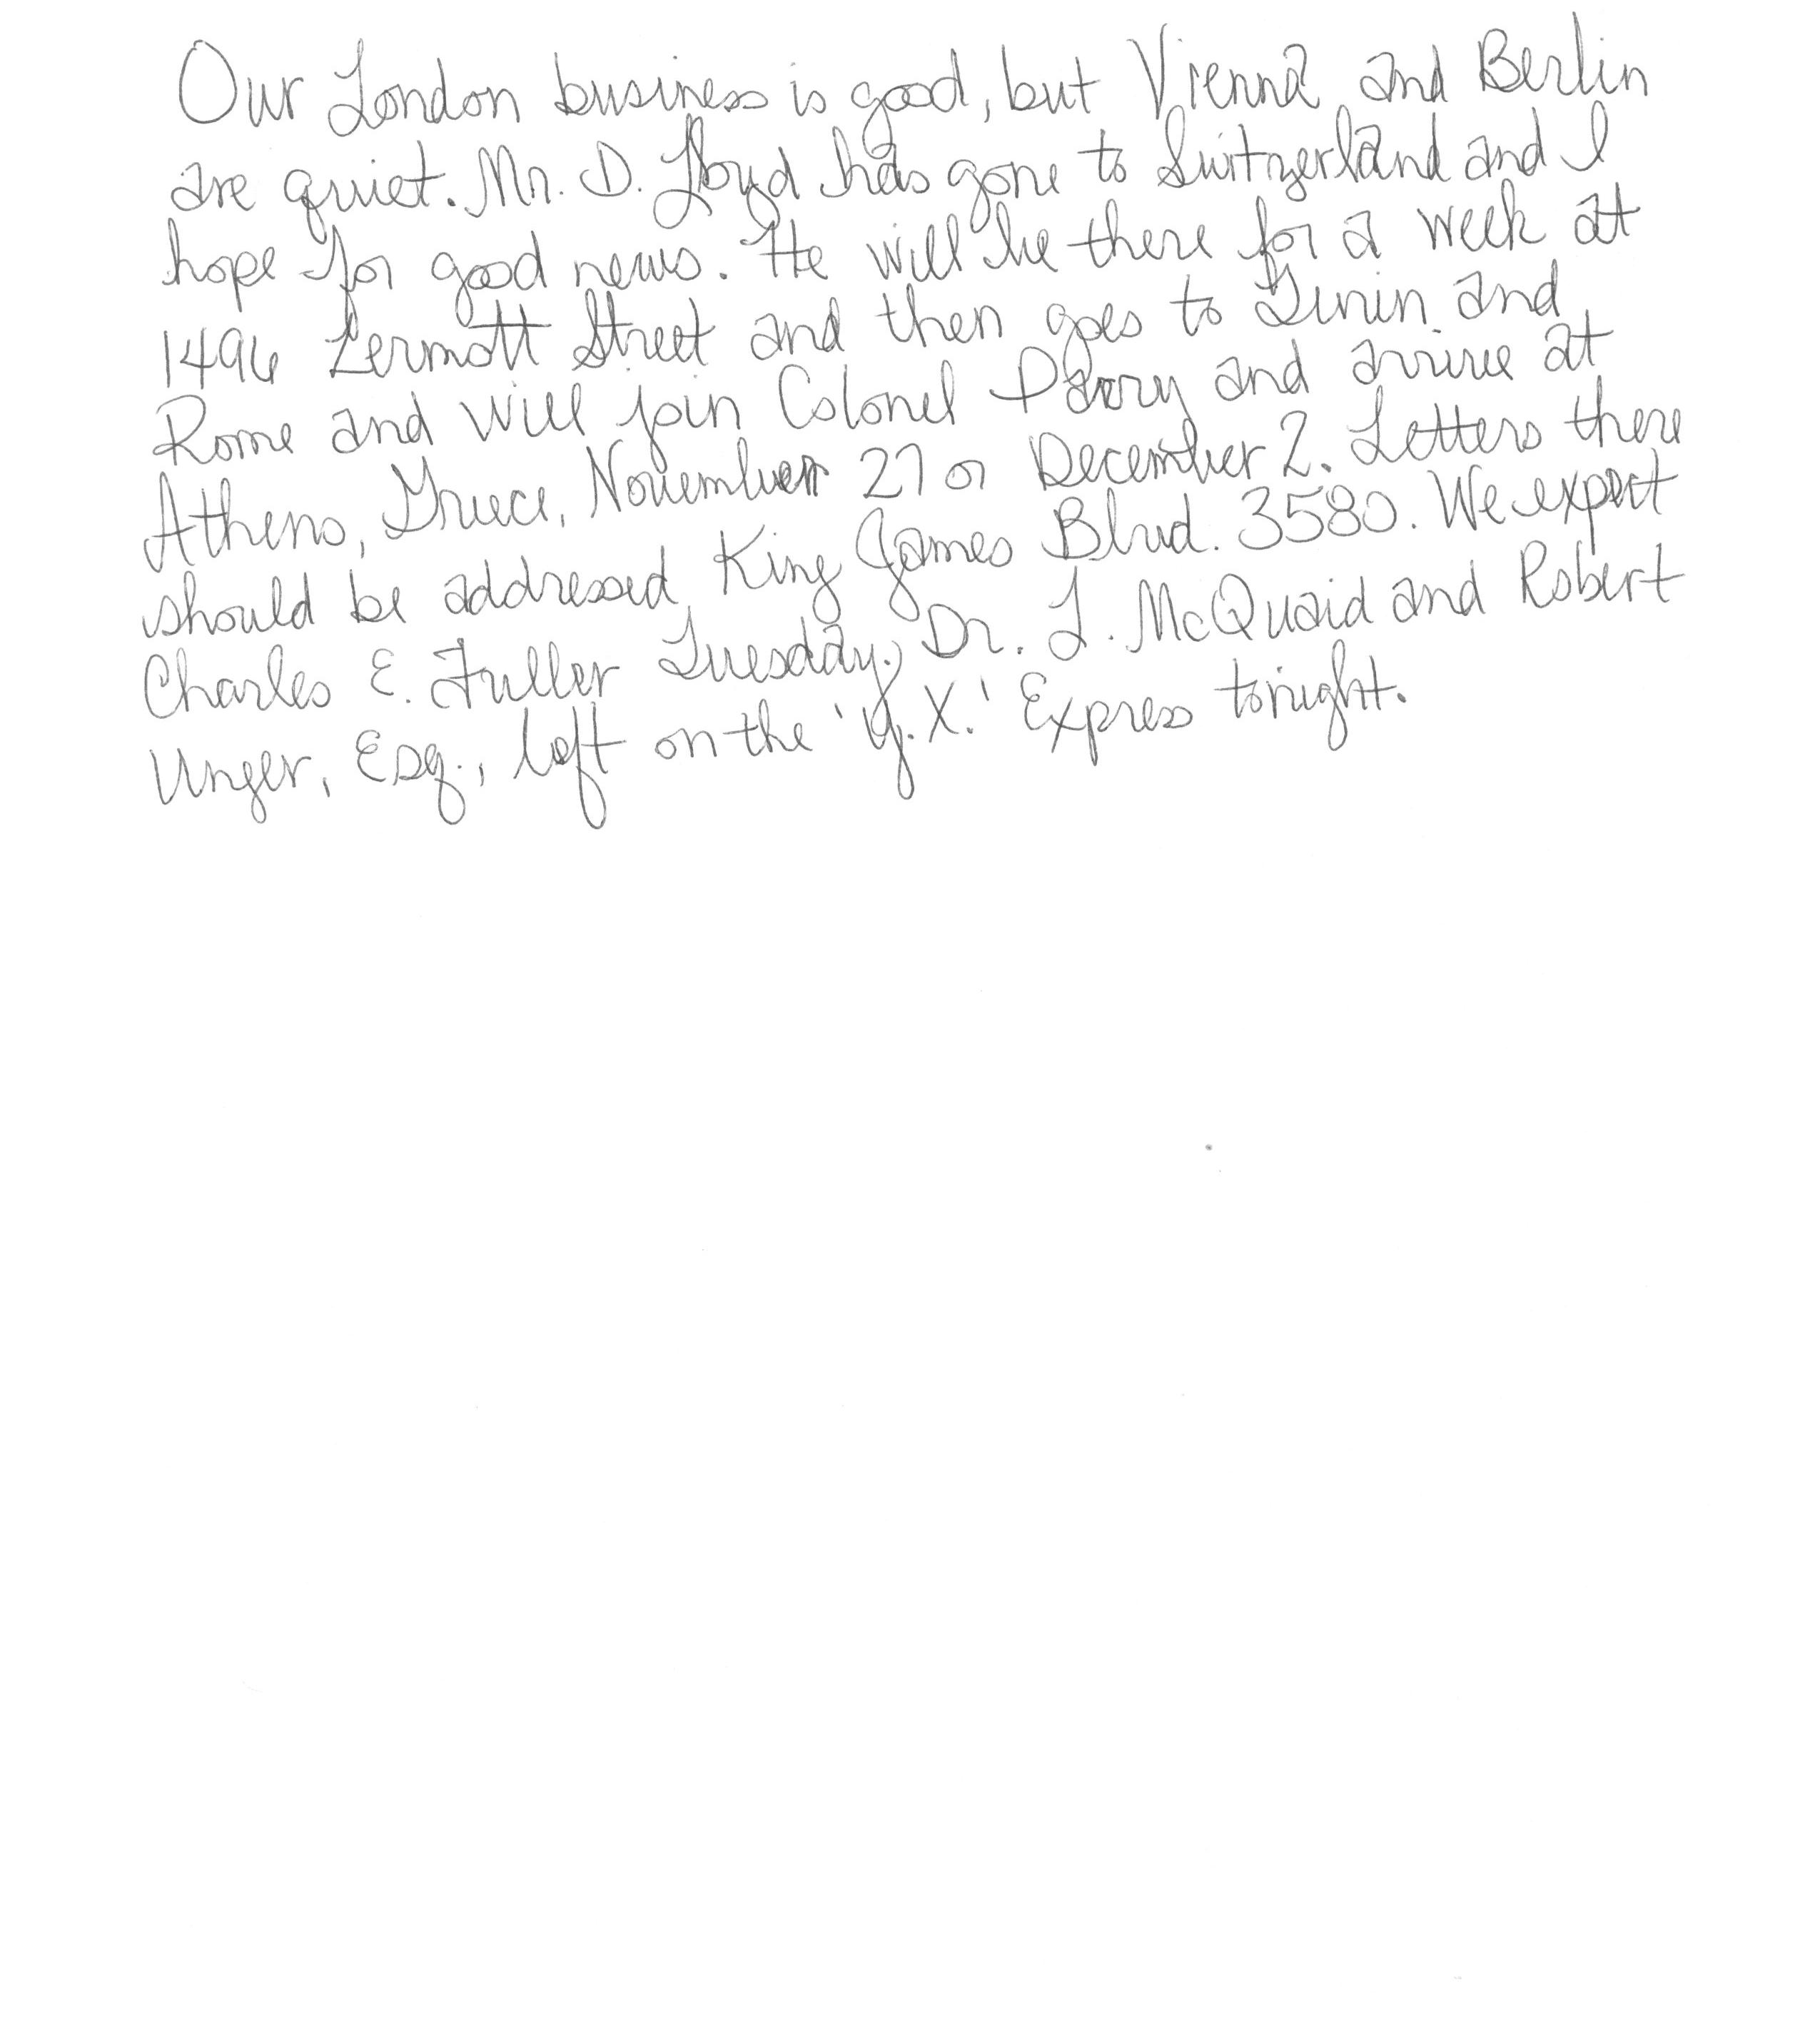 Our London business is good, but Vienna and Berlin
are quiet. Mr. D. Lloyd has gone to Switzerland and I
hope for good news. He will be there for a week at
1496 Zermott Street and then goes to Turin and
Rome and will join Colonel Parry and arrive at
Athens, Greece, November 27 or December 2. Letters there
should be addressed King James Blvd. 3580. We expect
Charles E. Fuller Tuesday. Dr. L. McQuaid and Robert
Unger, Esq., left on the 'Y.X.' Express tonight.